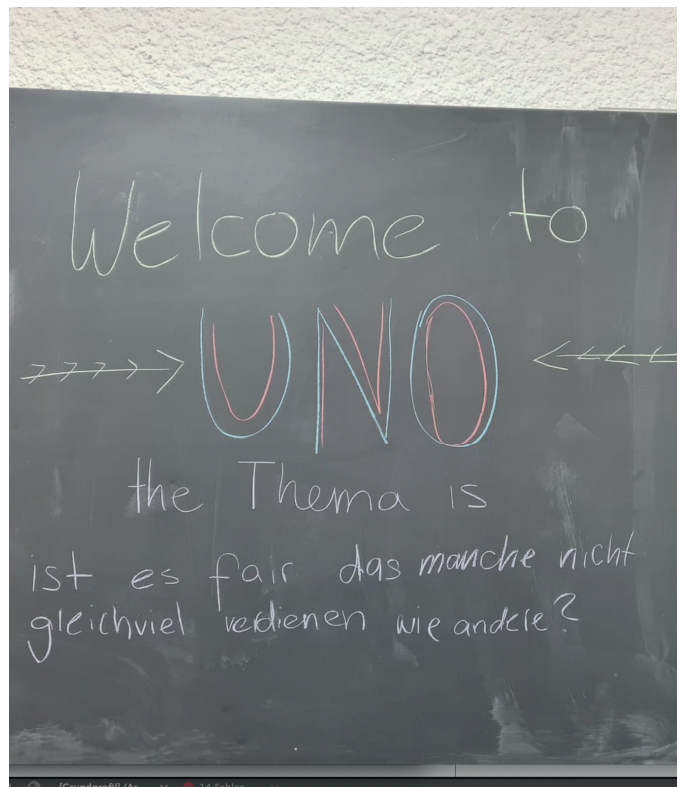 Welcome to
UNO
the Thema is
ist es fair das manche nicht
gleichviel verdienen wie andere?
14 Fehler